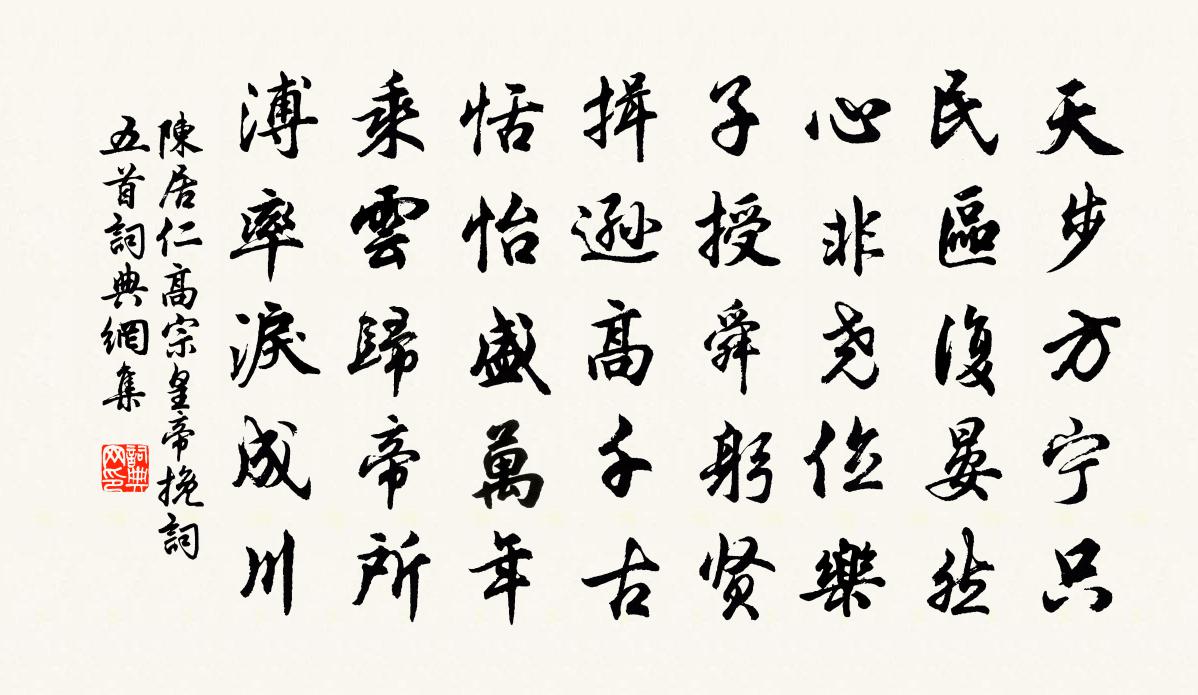 天步方宁只
民區復晏然
心非尧位樂
子授舜躬贤
揖遜高千古
恬怡盛萬年
乘雲歸帝所
溥率淚成川
陳居仁高宗皇帝挽詞
五首詞典網集
詞典网印